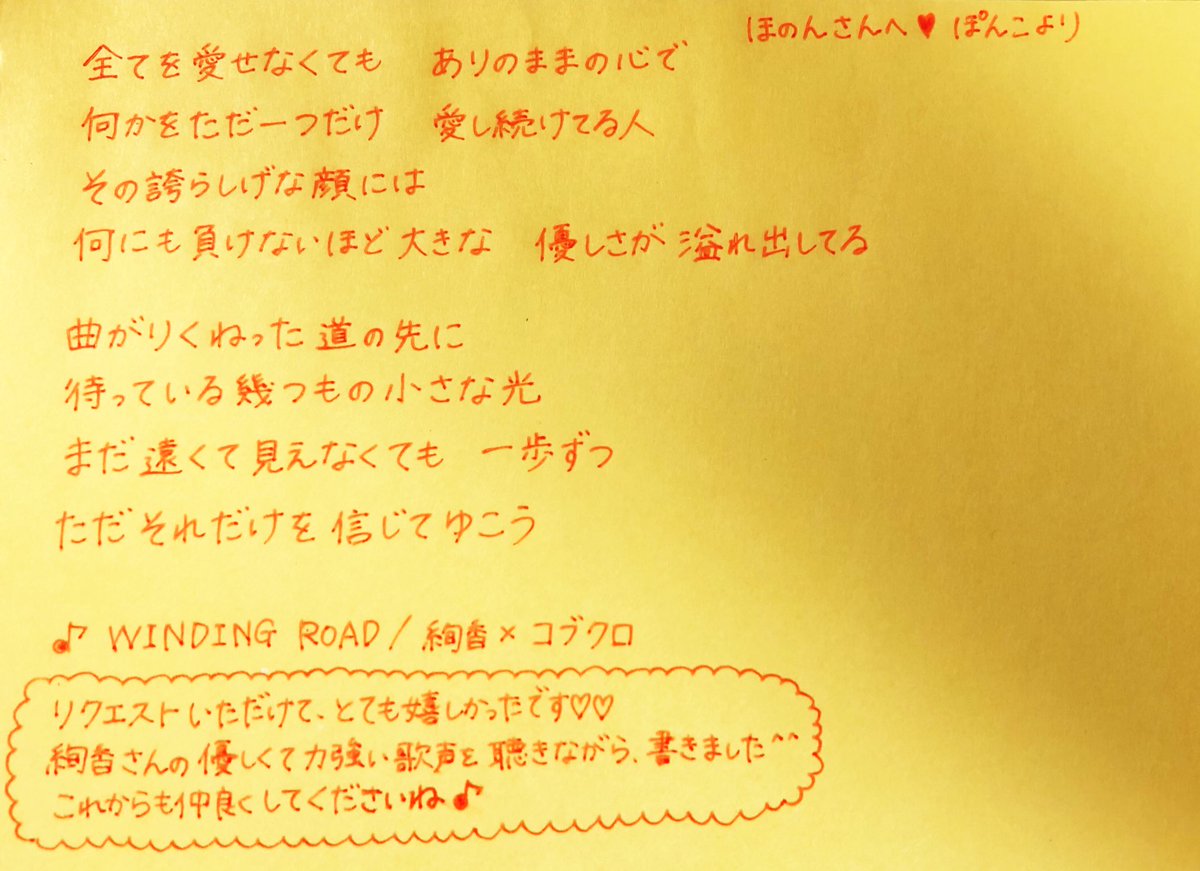 ほのんさんへ♥ ぽんこより
全てを愛せなくても ありのままの心で
何かをただ一つだけ 愛し続けてる人
その誇らしげな顔には
何にも負けないほど大きな 優しさが溢れ出してる
曲がりくねった道の先に
待っている幾つもの小さな光
まだ遠くて見えなくても 一歩ずつ
ただそれだけを信じてゆこう
♪ WINDING ROAD / 絢香×コブクロ
リクエストいただけて、とても嬉しかったです♡♡
絢香さんの優しくて力強い歌声を聴きながら、書きました^^
これからも仲良くしてくださいね♪